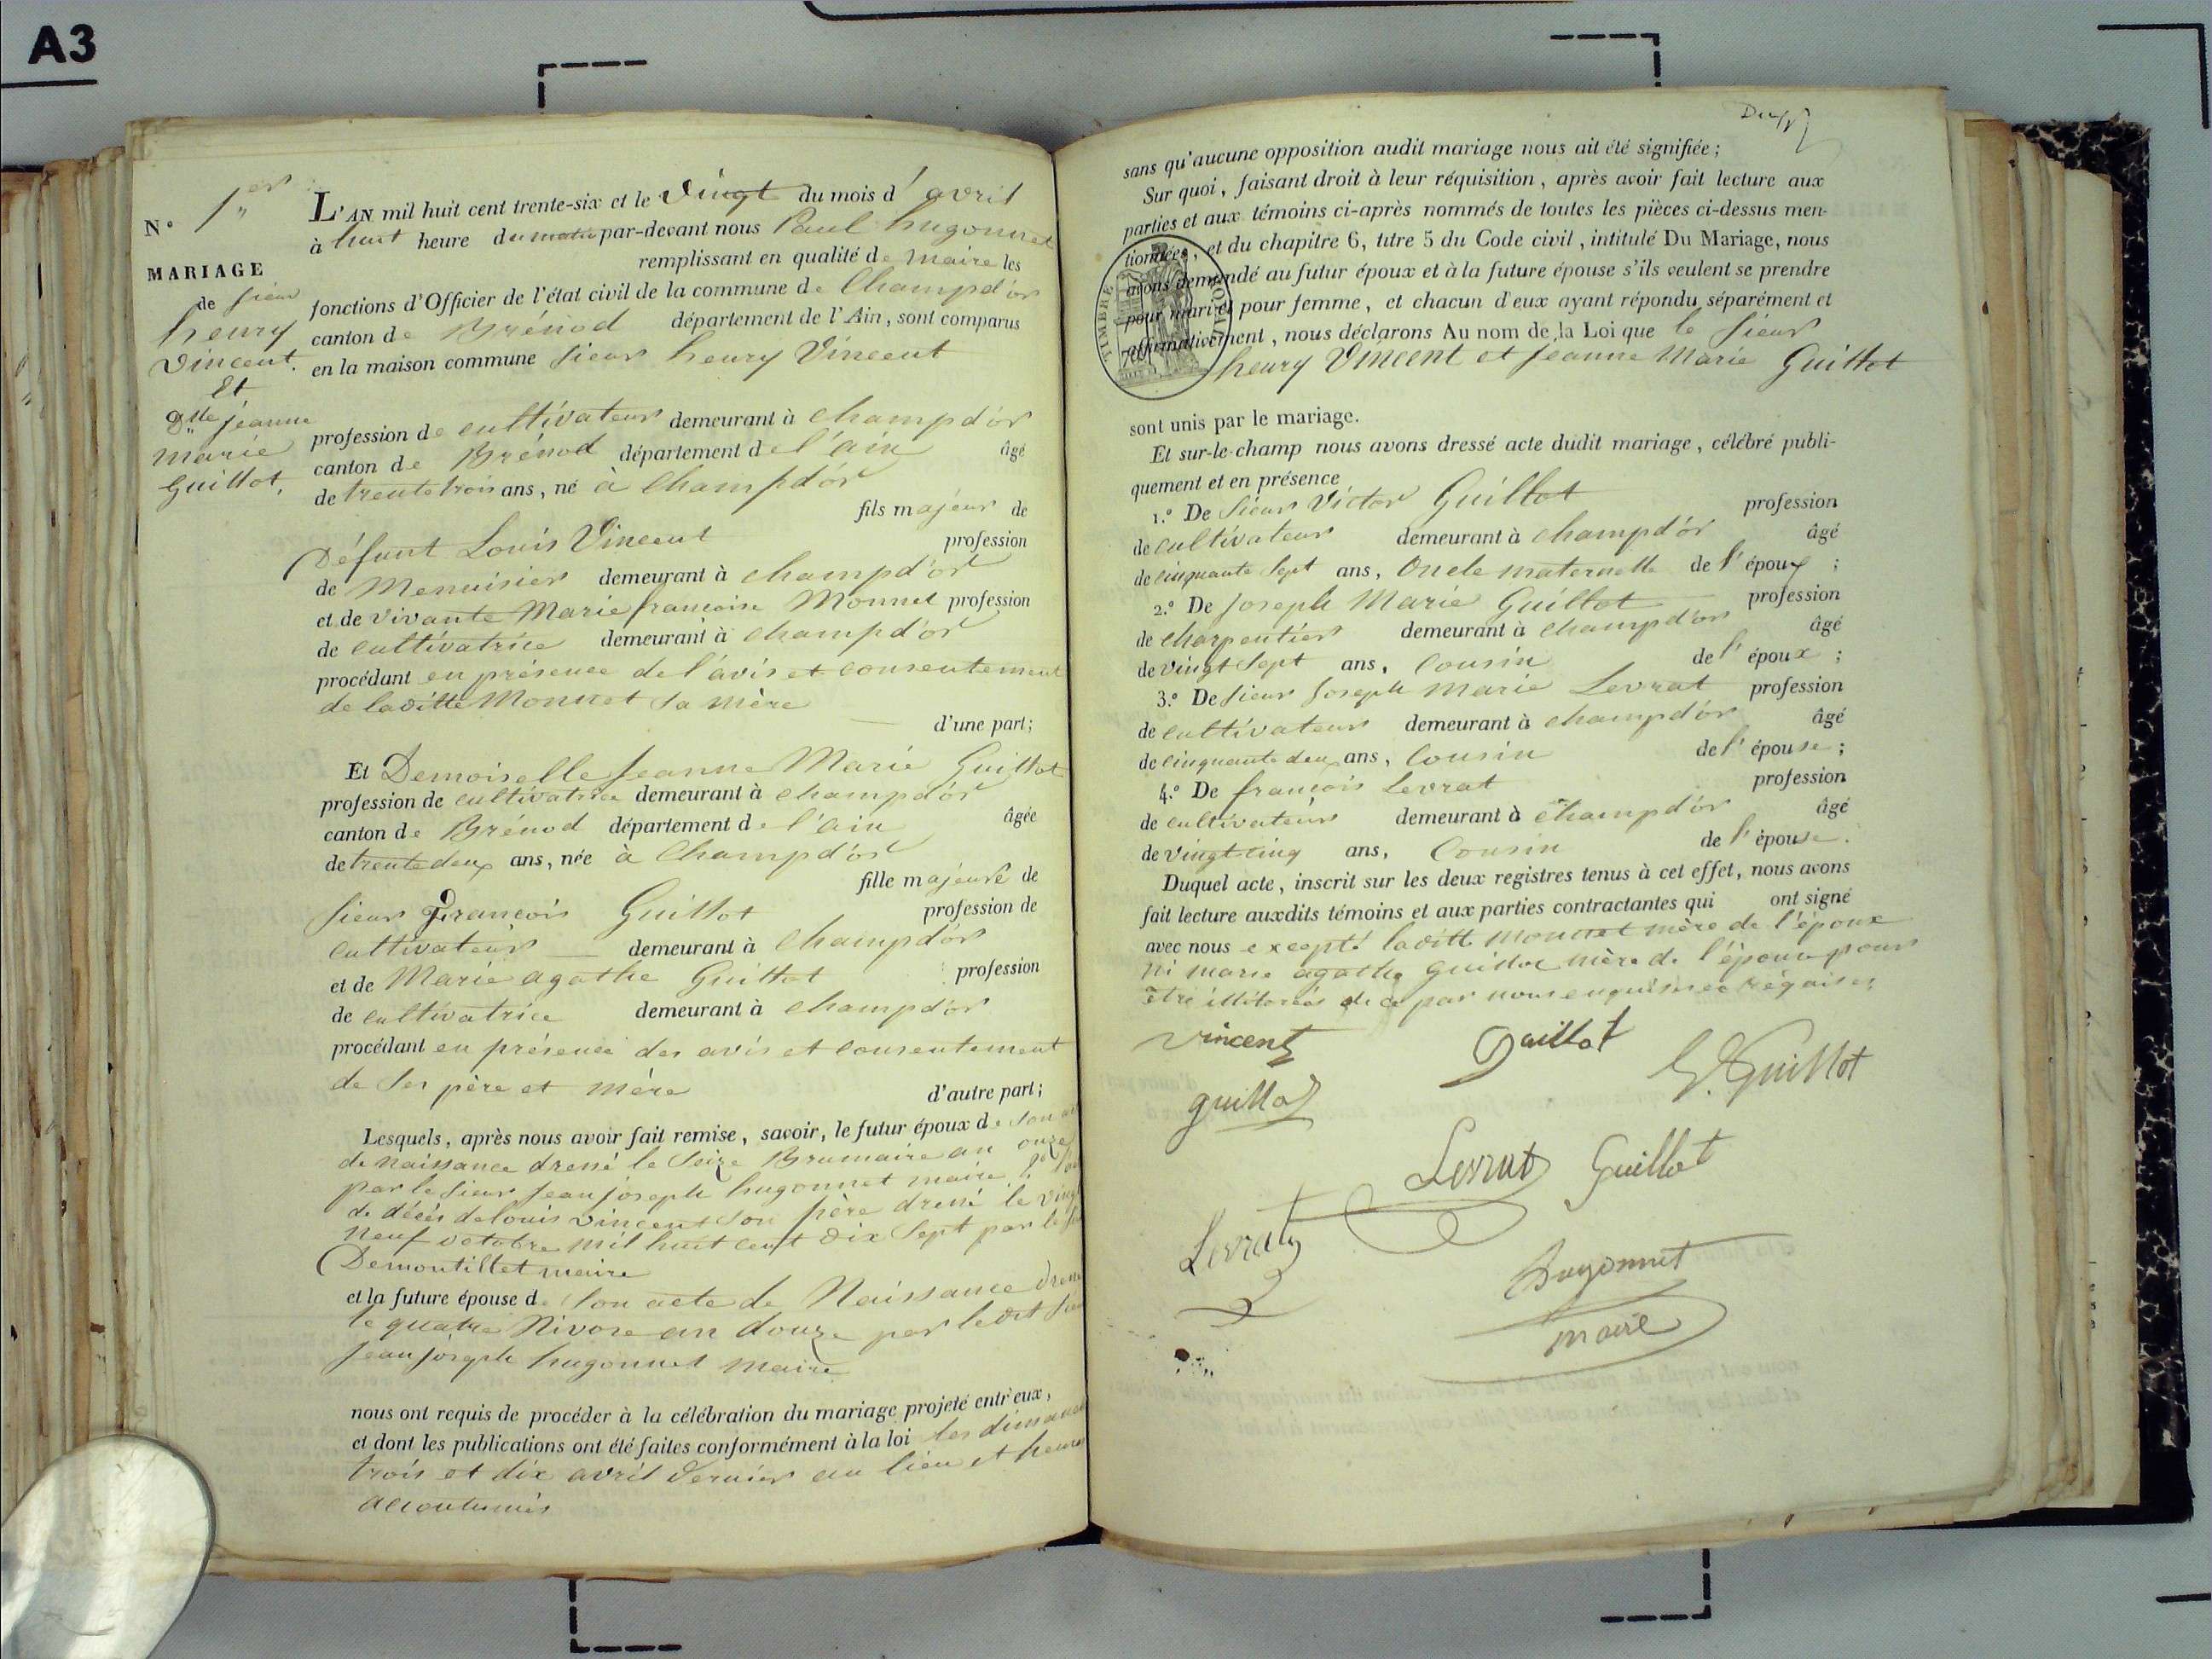 A3
N.° 1er
MARIAGE
de sieur
henry
Vincent.
Et
Dlle jeanne
marie
Guillot.
L'AN mil huit cent trente-six et le Vingt du mois d'avril
à huit heure du matin par-devant nous Paul hugonnet
remplissant en qualité de maire les
fonctions d'Officier de l'état civil de la commune de Champd'or
canton de Brénod département de l'Ain, sont comparus
en la maison commune sieur henry Vincent
profession de cultivateur demeurant à champd'or
canton de Brénod département de l'ain âgé
de trente trois ans, né à Champd'or
fils majeur de
Défunt Louis Vincent profession
de Menuisier demeurant à champd'or
et de vivante Marie francoise Monnet profession
de cultivatrice demeurant à champd'or
procédant en présence de l'avis et consentement
de laditte Monnet sa mère
d'une part;
Et Demoiselle Jeanne Marie Guillot
profession de cultivatrice demeurant à champd'or
canton de Brénod département de l'ain âgée
de trente deux ans, née à Champd'or
fille majeure de
sieur francois Guillot profession de
cultivateur demeurant à champd'or
et de Marie agathe Guillot profession
de cultivatrice demeurant à champd'or
procédant en présence des avis et consentement
de ses père et mère d'autre part;
Lesquels, après nous avoir fait remise, savoir, le futur époux de son
de naissance dressé le seize Brumaire an onze
par le sieur jean joseph hugonnet maire
de décès de louis vincent son père dressé le vingt
neuf octobre mil huit cent dix sept par le
Demontillet maire
et la future épouse de son acte de Naissance
le quatre Nivose an douze par ledit
jean joseph hugonnet maire
nous ont requis de procéder à la célébration du mariage projeté entr'eux,
et dont les publications ont été faites conformément à la loi les
trois et dix avril dernier au lieu et heure
accoutumés
sans qu'aucune opposition audit mariage nous ait été signifiée;
Sur quoi, faisant droit à leur réquisition, après avoir fait lecture aux
parties et aux témoins ci-après nommés de toutes les pièces ci-dessus men-
tionnées, et du chapitre 6, titre 5 du Code civil, intitulé Du Mariage, nous
avons demandé au futur époux et à la future épouse s'ils veulent se prendre
pour mari et pour femme, et chacun d'eux ayant répondu séparément et
affirmativement, nous déclarons Au nom de la Loi que le sieur
henry Vincent et jeanne Marie Guillot
TIMBRE ROYAL
sont unis par le mariage.
Et sur-le-champ nous avons dressé acte dudit mariage, célébré publi-
quement et en présence
1.° De sieur Victor Guillot profession
de cultivateur demeurant à champd'or âgé
de cinquante sept ans, Oncle maternelle de l'époux;
2.° De joseph Marie Guillot profession
de charpentier demeurant à champd'or âgé
de vingt sept ans, Cousin de l'époux;
3.° De sieur joseph marie Levrat profession
de cultivateur demeurant à champd'or âgé
de cinquante deux ans, Cousin de l'épouse;
4.° De francois Levrat profession
de cultivateur demeurant à champd'or âgé
de vingt cinq ans, Cousin de l'épouse.
Duquel acte, inscrit sur les deux registres tenus à cet effet, nous avons
fait lecture auxdits témoins et aux parties contractantes qui ont signé
avec nous excepté laditte monnet mère de l'époux
ni marie agathe guillot mère de l'épouse pour
être illitérées de ce par nous enquises
Vincent
Guillot
G. Guillot
guillot
Levrat
Guillot
Levrat
hugonnet
maire